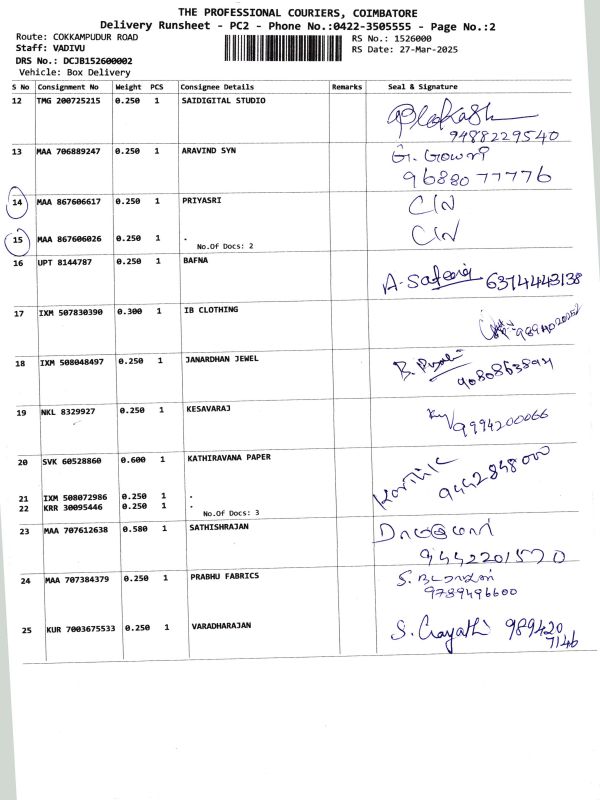 THE PROFESSIONAL COURIERS, COIMBATORE
Delivery Runsheet - PC2 - Phone No.:0422-3505555 - Page No.:2
Route: COKKAMPUDUR ROAD
RS No.: 1526000
Staff: VADIVU
RS Date: 27-Mar-2025
DRS No.: DCJB152600002
Vehicle: Box Delivery
S No Consignment No Weight PCS Consignee Details Remarks Seal & Signature
12 TMG 200725215 0.250 1 SAIDIGITAL STUDIO
9488229540
13 MAA 706889247 0.250 1 ARAVIND SYN G. Gowri
96880 77776
14 MAA 867606617 0.250 1 PRIYASRI C/N
15 MAA 867606026 0.250 1 . C/N
No.Of Docs: 2
16 UPT 8144787 0.250 1 BAFNA
6374443138
17 IXM 507830390 0.300 1 IB CLOTHING
18 IXM 508048497 0.250 1 JANARDHAN JEWEL
19 NKL 8329927 0.250 1 KESAVARAJ
9994200066
20 SVK 60528860 0.600 1 KATHIRAVANA PAPER Karthik
9442848000
21 IXM 508072986 0.250 1 .
22 KRR 30095446 0.250 1 .
No.Of Docs: 3
23 MAA 707612638 0.580 1 SATHISHRAJAN
9442201570
24 MAA 707384379 0.250 1 PRABHU FABRICS
9789496600
25 KUR 7003675533 0.250 1 VARADHARAJAN S. Gayathi 989420
7146